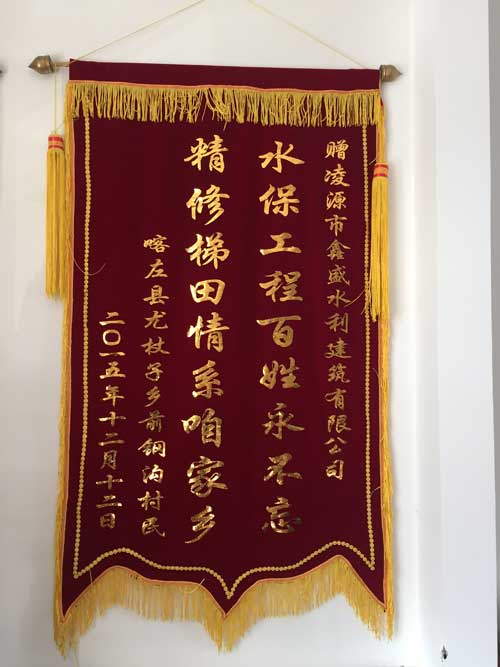 赠凌源市鑫盛水利建筑有限公司
水保工程百姓永不忘
精修梯田情系咱家乡
喀左县尤杖子乡前铜沟村民
二〇一五年十二月十二日